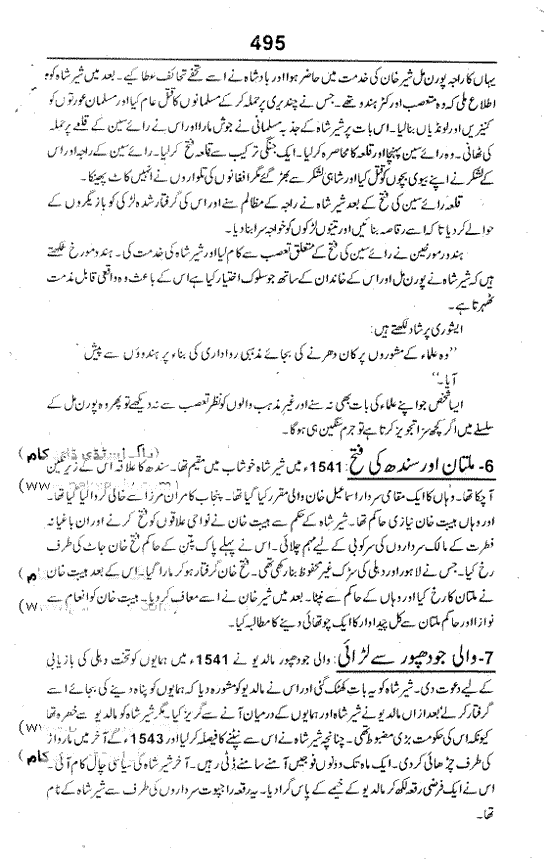 495
یہاں کا راجہ پورن مل شیر خان کی خدمت میں حاضر ہوا اور بادشاہ نے اسے تحفے تحائف عطا کیے۔ بعد میں شیر شاہ کو
اطلاع ملی کہ وہ متعصب اور کٹر ہندو تھے۔ جس نے چندیری پر حملہ کر کے مسلمانوں کا قتل عام کیا اور مسلمان عورتوں کو
کنیزیں اور لونڈیاں بنا لیا۔ اس بات پر شیر شاہ کے جذبہ مسلمانی نے جوش مارا اور اس نے رائے سین کے قلعے پر حملہ
کی ٹھانی۔ وہ رائے سین پہنچا اور قلعہ کا محاصرہ کر لیا۔ ایک جنگی ترکیب سے قلعہ فتح کر لیا۔ رائے سین کے راجہ اور اس
کے لشکر نے اپنے بیوی بچوں کو قتل کیا اور شاہی لشکر سے بھڑ گئے مگر افغانوں کی تلواروں نے انہیں کاٹ پھینکا۔
قلعہ رائے سین کی فتح کے بعد شیر شاہ نے راجہ کے مظالم سنے اور اس کی گرفتار شدہ لڑکی کو بازیگروں کے
حوالے کر دیا تاکہ اسے رقاصہ بنائیں اور تینوں لڑکوں کو خواجہ سرا بنا دیا۔
ہندو مورخین نے رائے سین کی فتح کے متعلق تعصب سے کام لیا اور شیر شاہ کی خدمت کی۔ ہندو مورخ لکھتے
ہیں کہ شیر شاہ نے پورن مل اور اس کے خاندان کے ساتھ جو سلوک اختیار کیا ہے اس کے باعث وہ واقعی قابل مذمت
ٹھہرتا ہے۔
ایشوری پرشاد لکھتے ہیں:
”وہ علماء کے مشوروں پر کان دھرنے کی بجائے مذہبی رواداری کی بناء پر ہندوؤں سے پیش
آیا۔“
ایسا شخص جو اپنے علماء کی بات بھی نہ سنے اور غیر مذہب والوں کو نظر تعصب سے نہ دیکھے تو پھر وہ پورن مل کے
سلسلے میں اگر کچھ سزا تجویز کرتا ہے تو جرم سنگین ہی ہوگا۔
6- ملتان اور سندھ کی فتح: 1541ء میں شیر شاہ خوشاب میں مقیم تھا۔ سندھ کا علاقہ اس کے زیر نگین
آ چکا تھا۔ وہاں کا ایک مقامی سردار اسماعیل خان والی مقرر کیا گیا تھا۔ پنجاب کامران مرزا سے خالی کروا لیا گیا تھا۔
اور وہاں ہیبت خان نیازی حاکم تھا۔ شیر شاہ کے حکم سے ہیبت خان نے نواحی علاقوں کو فتح کرنے اور ان باغیانہ
فطرت کے مالک سرداروں کی سرکوبی کے لیے مہم چلائی۔ اس نے پہلے پاک پتن کے حاکم فتح خان جاٹ کی طرف
رخ کیا۔ جس نے لاہور اور دہلی کی سڑک غیر محفوظ بنا رکھی تھی۔ فتح خان گرفتار ہو کر مارا گیا۔ اس کے بعد ہیبت خان
نے ملتان کا رخ کیا اور وہاں کے حاکم سے نپٹا۔ بعد میں شیر خان نے اسے معاف کر دیا۔ ہیبت خان کو انعام سے
نوازا اور حاکم ملتان سے کل پیداوار کا ایک چوتھائی دینے کا مطالبہ کیا۔
7- والی جودھپور سے لڑائی: والی جودھپور مالدیو نے 1541ء میں ہمایوں کو تخت دہلی کی بازیابی
کے لیے دعوت دی۔ شیر شاہ کو یہ بات کھٹک گئی اور اس نے مالدیو کو مشورہ دیا کہ ہمایوں کو پناہ دینے کی بجائے اسے
گرفتار کر لے بعد ازاں مالدیو نے شیر شاہ اور ہمایوں کے درمیان آنے سے گریز کیا۔ مگر شیر شاہ کو مالدیو سے خطرہ تھا
کیونکہ اس کی حکومت بڑی مضبوط تھی۔ چنانچہ شیر شاہ نے اس سے نپٹنے کا فیصلہ کر لیا اور 1543ء کے آخر میں مارواڑ
کی طرف چڑھائی کر دی۔ ایک ماہ تک دونوں فوجیں آمنے سامنے ڈٹی رہیں۔ آخر شیر شاہ کی سیاسی چال کام آئی۔
اس نے ایک فرضی رقعہ لکھ کر مالدیو کے خیمے کے پاس گرا دیا۔ یہ رقعہ راجپوت سرداروں کی طرف سے شیر شاہ کے نام
تھا۔